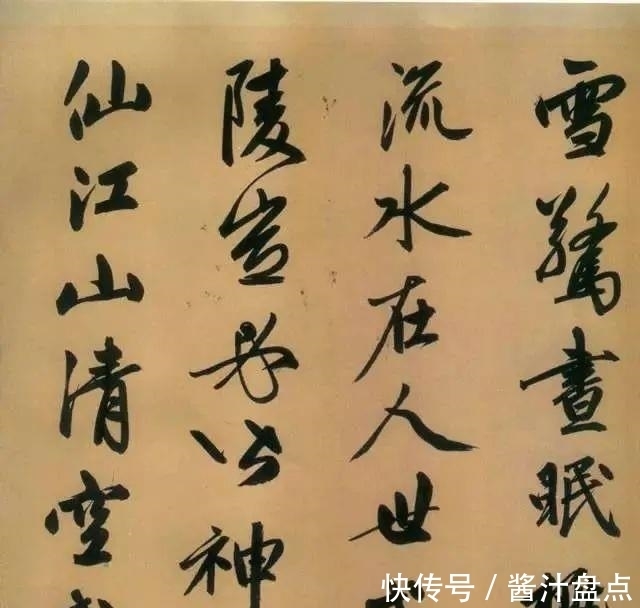 雪驚晝眠
流水在人世
陵豈必皆神
仙江山清空
快传号 / 酱汁盘点